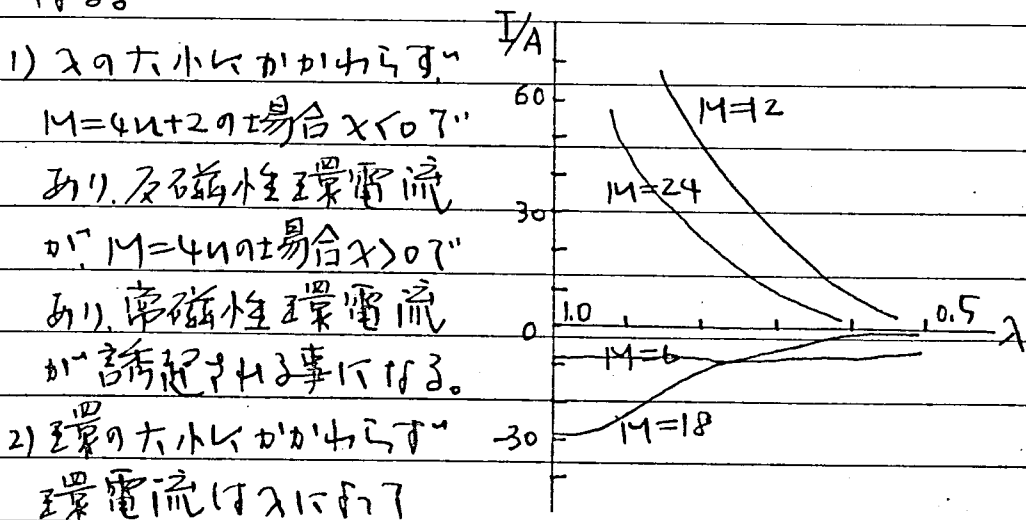 なる。
I/A
1) λの大小にかかわらず、
M=4n+2の場合χ<0で
あり、反磁性環電流
が、M=4nの場合χ>0で
あり、常磁性環電流
が誘起される事になる。
2) 環の大小にかかわらず
環電流はλによって
60
30
0
-30
M=12
M=24
1.0
0.5
λ
M=6
M=18